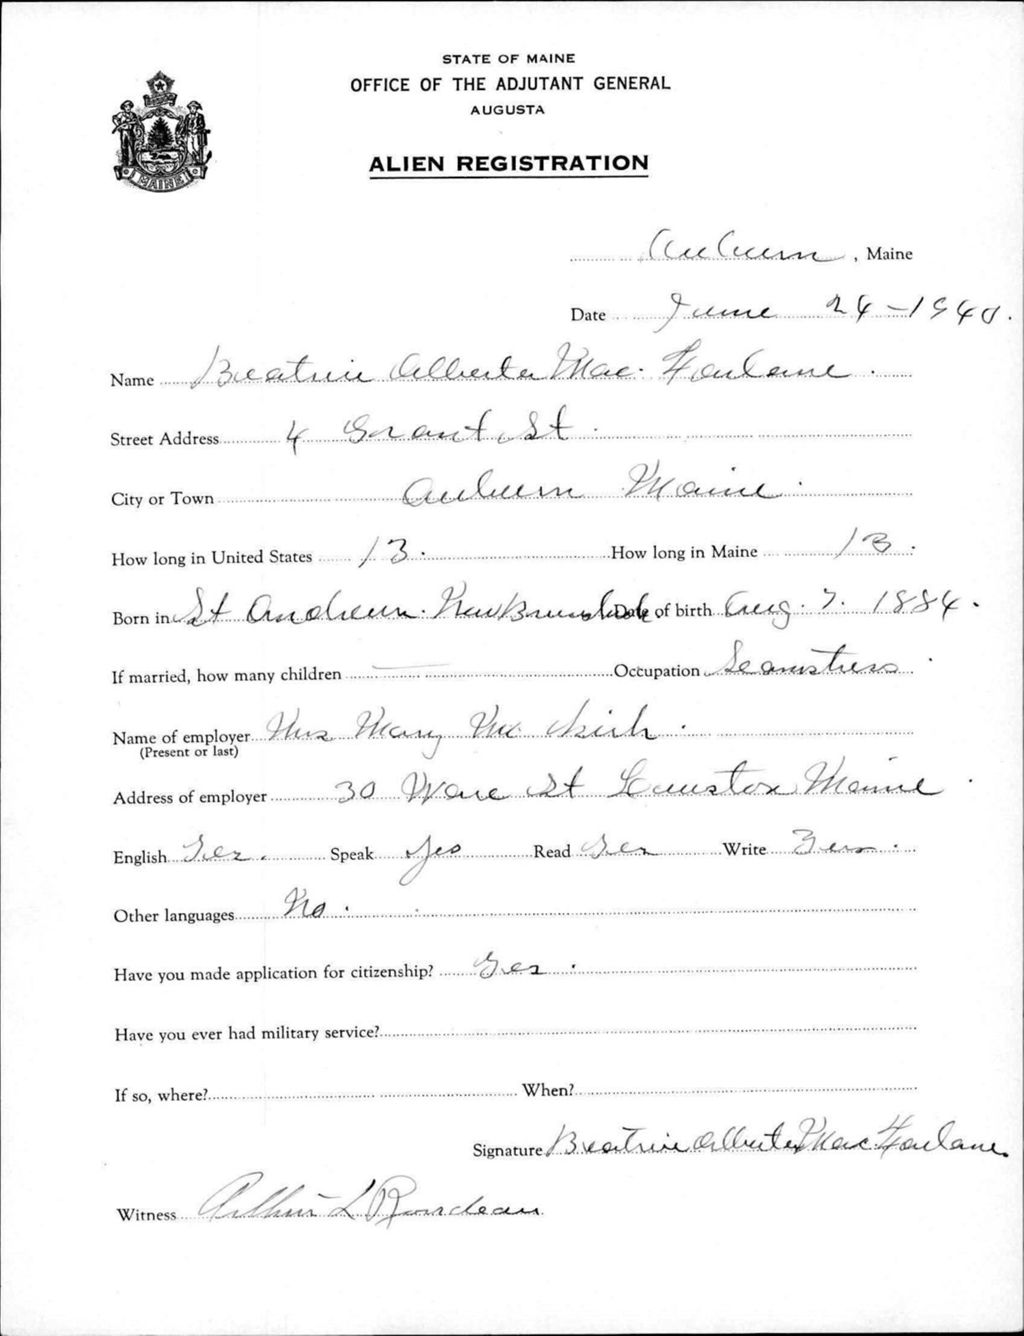 STATE OF MAINE
OFFICE OF THE ADJUTANT GENERAL
AUGUSTA
ALIEN REGISTRATION
MAINE
Auburn, Maine
Date June 24-1940.
Name Beatrice Alberta Mac. Farlane.
Street Address 4 Grant St.
City or Town Auburn Maine.
How long in United States 13. How long in Maine 13.
Born in St Andrews. New Brunswick. Date of birth Aug. 7. 1884.
If married, how many children — Occupation Seamstress.
Name of employer Mrs Mary Mc.
(Present or last)
Address of employer 30 Ware St Lewiston Maine.
English Yes. Speak Yes Read Yes Write Yes.
Other languages No.
Have you made application for citizenship? Yes.
Have you ever had military service?
If so, where? When?
Signature Beatrice Alberta Mac Farlane.
Witness L